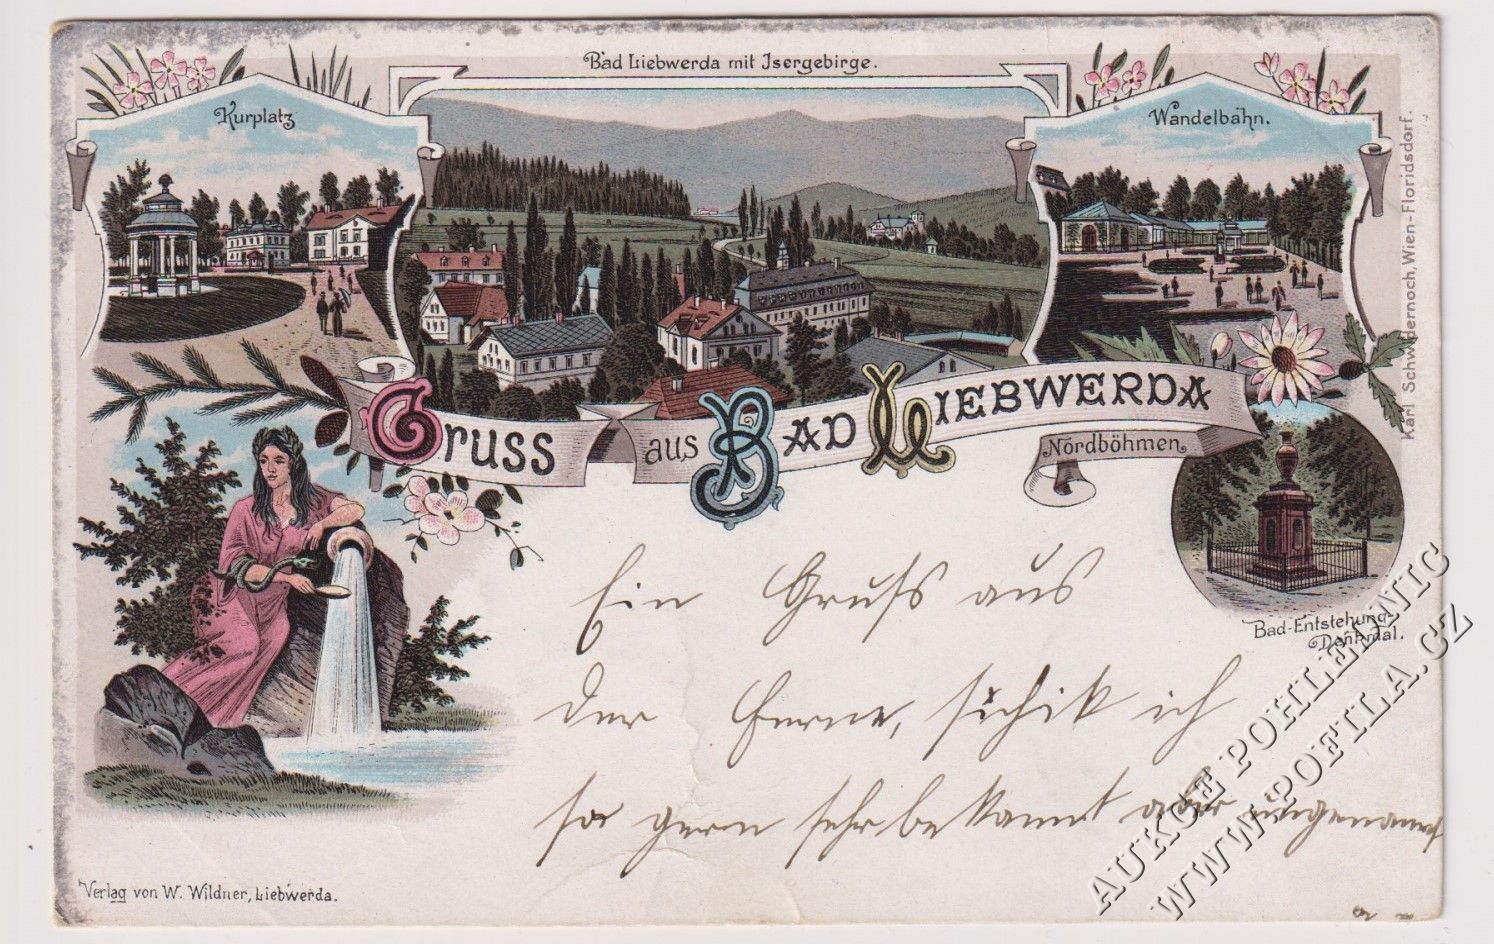 Bad Liebwerda mit Isergebirge.
Kurplatz
Wandelbahn.
Karl Schwidernoch, Wien-Floridsdorf.
Gruss aus Bad Liebwerda
Nordböhmen
Bad-Entstehungs-
Denkmal.
Ein Gruß aus
der Ferne, schick ich
so gern sehr bekannt oder ungenannt
Verlag von W. Wildner, Liebwerda.
AUKCE POHLEDNIC
WWW.POFILA.CZ